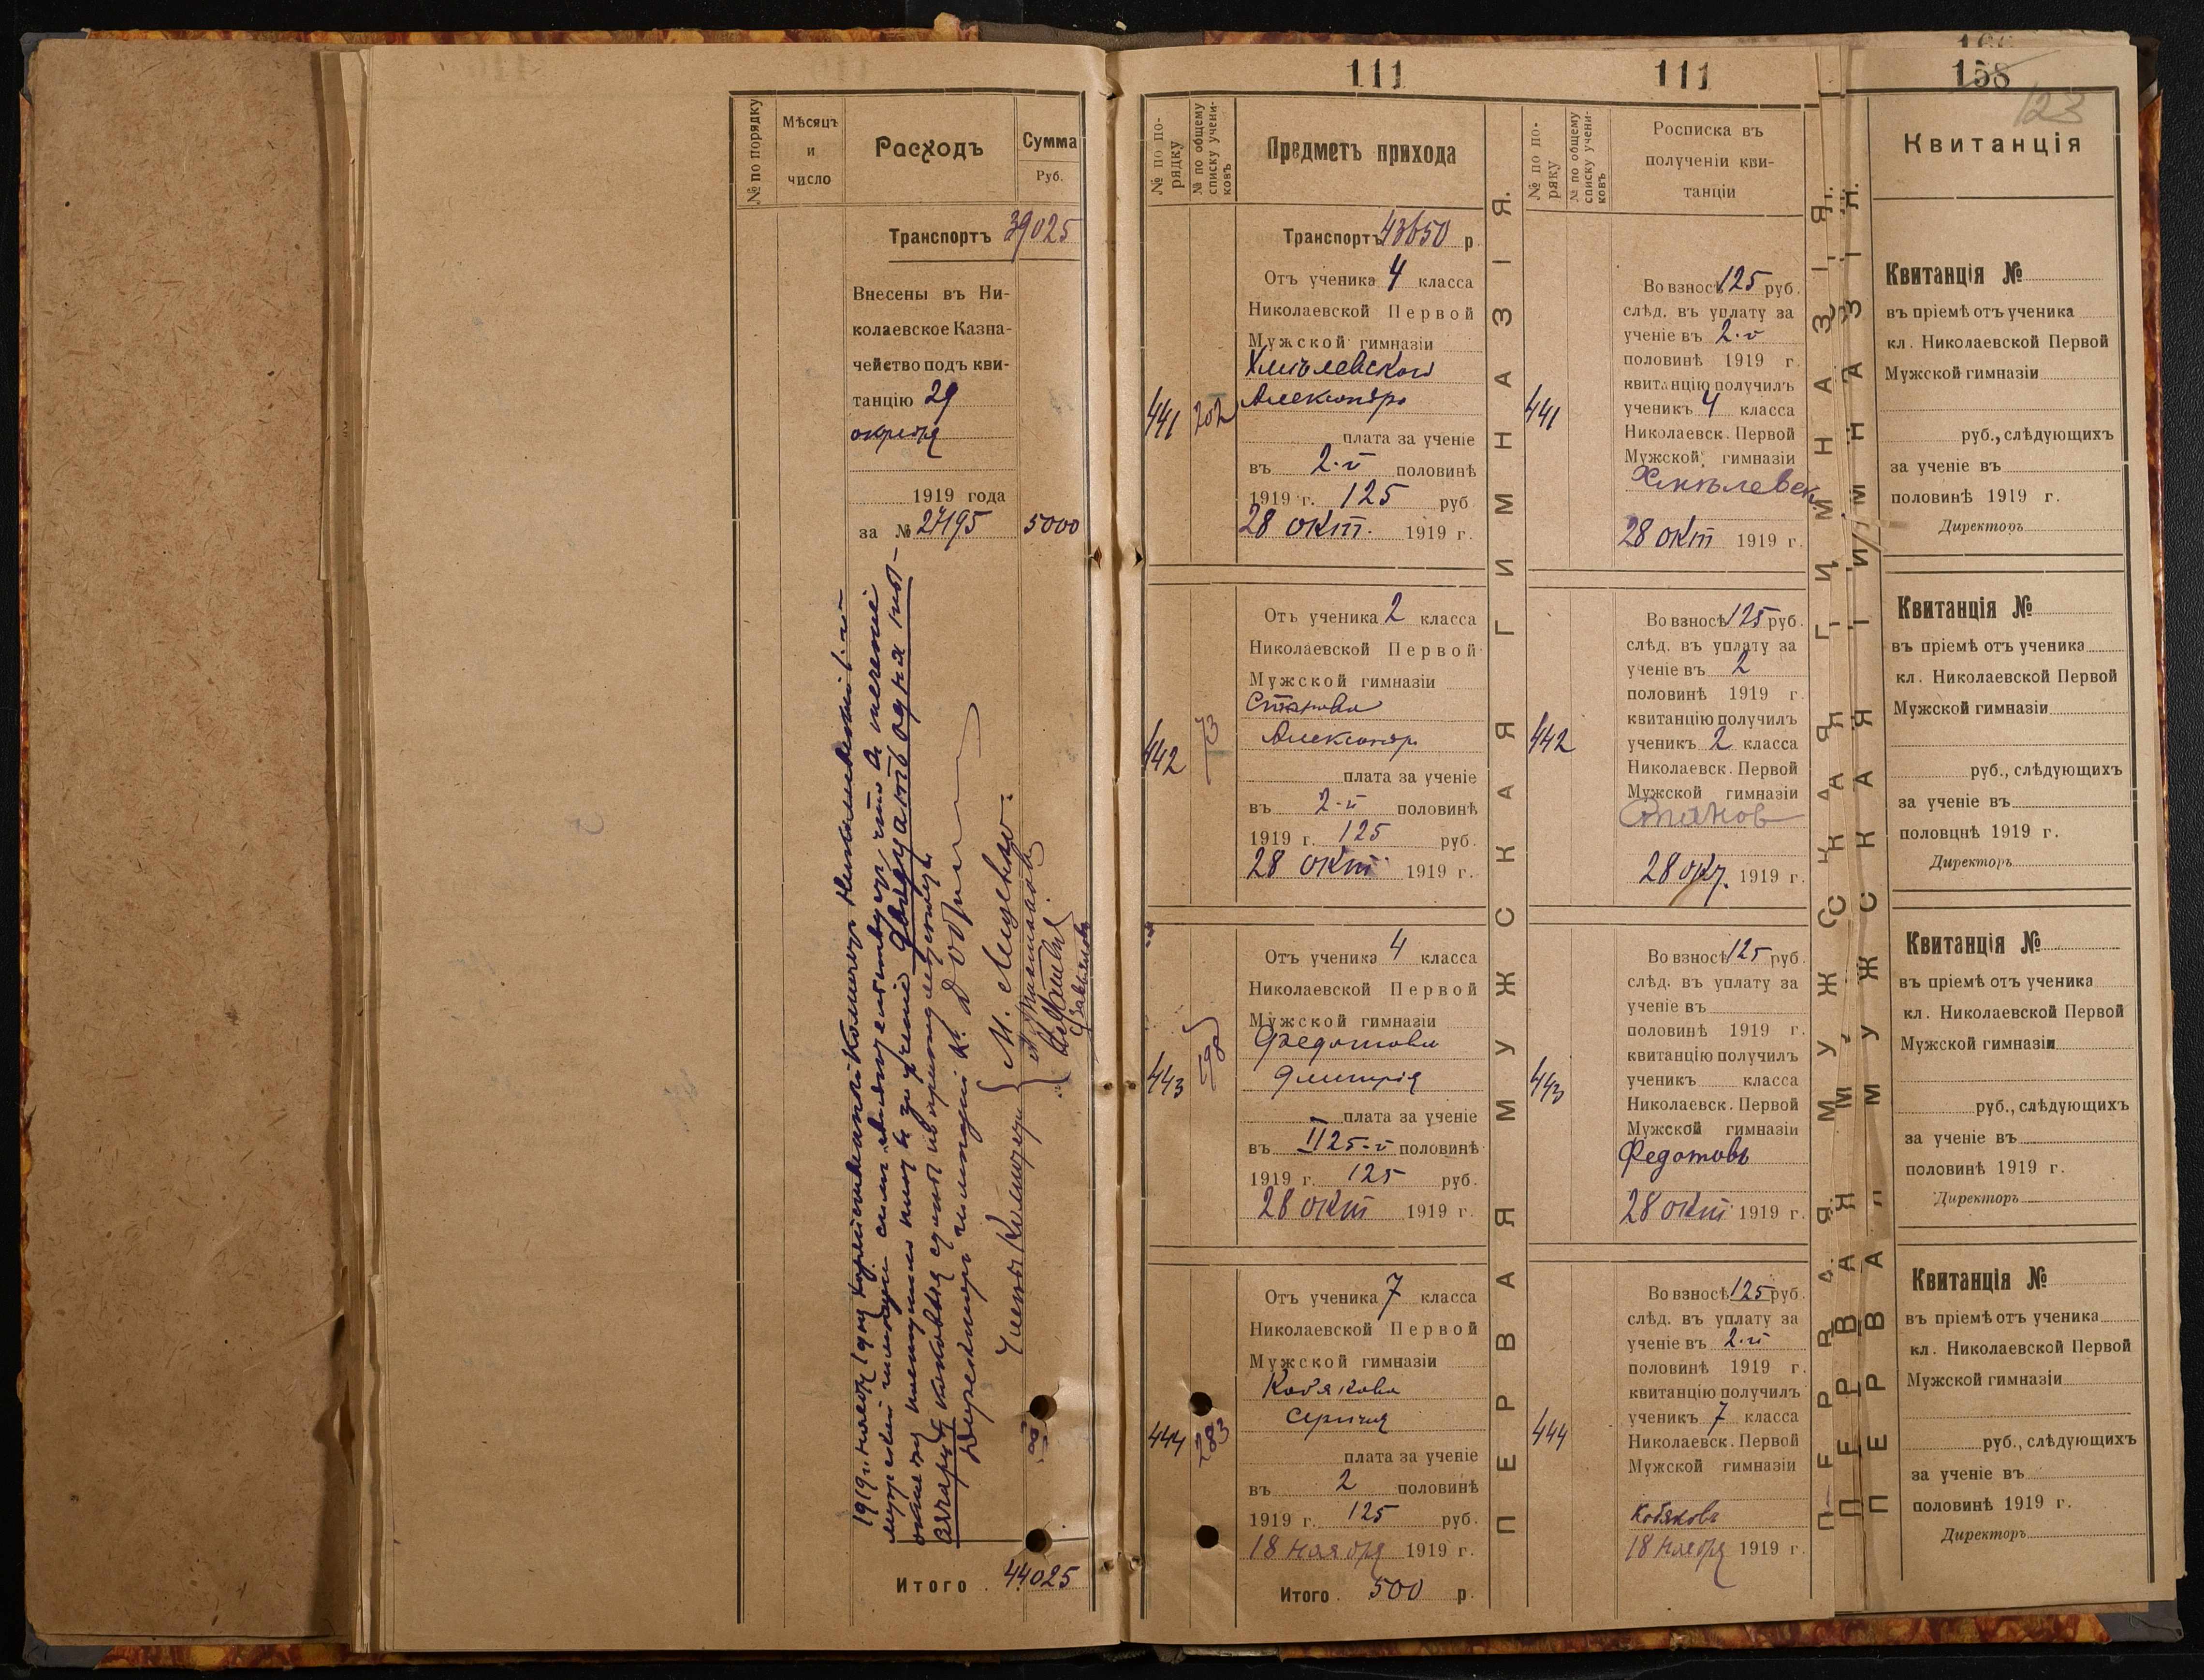 № по порядку
Мѣсяцъ
и
число
Расходъ
Сумма
Руб.
Транспортъ 39025
Внесены въ Ни-
колаевское Казна-
чейство подъ кви-
танцію 29
октября
1919 года
за № 27195 5000
1919 г. ноября 1 дня
что въ теченіе
двадцать одна ты-
Директоръ гимназіи К.
Члены Комиссіи
Итого 44025
111
№ по по-
рядку
№ по общему
списку учени-
ковъ
Предметъ прихода
Транспортъ 43650 р
441 202
Отъ ученика 4 класса
Николаевской Первой
Мужской гимназіи
Хмѣлевскаго
Александра
плата за ученіе
въ 2-й половинѣ
1919 г. 125 руб
28 окт. 1919 г.
442 73
Отъ ученика 2 класса
Николаевской Первой
Мужской гимназіи
Станова
Александра
плата за ученіе
въ 2-й половинѣ
1919 г. 125 руб.
28 окт. 1919 г.
443
Отъ ученика 4 класса
Николаевской Первой
Мужской гимназіи
Федотова
Дмитрія
плата за ученіе
въ II 25-й половинѣ
1919 г. 125 руб.
28 окт 1919 г.
444 183
Отъ ученика 7 класса
Николаевской Первой
Мужской гимназіи
Кобякова
Сергѣя
плата за ученіе
въ 2 половинѣ
1919 г. 125 руб.
18 ноября 1919 г.
Итого 500 р.
ПЕРВАЯ МУЖСКАЯ ГИМНАЗІЯ.
111
№ по по-
ряку
№ по общему
списку учени-
ковъ
Росписка въ
полученіи кви-
танціи
441
Во взносѣ 125 руб.
слѣд. въ уплату за
ученіе въ 2-й
половинѣ 1919 г.
квитанцію получилъ
ученикъ 4 класса
Николаевск. Первой
Мужской гимназіи
Хмѣлевск
28 окт 1919 г.
442
Во взносѣ 125 руб.
слѣд. въ уплату за
ученіе въ 2
половинѣ 1919 г.
квитанцію получилъ
ученикъ 2 класса
Николаевск. Первой
Мужской гимназіи
Станов
28 окт. 1919 г.
443
Во взносѣ 125 руб.
слѣд. въ уплату за
ученіе въ
половинѣ 1919 г.
квитанцію получилъ
ученикъ класса
Николаевск. Первой
Мужской гимназіи
Федотовъ
28 окт 1919 г.
444
Во взносѣ 125 руб.
слѣд. въ уплату за
ученіе въ 2-й
половинѣ 1919 г.
квитанцію получилъ
ученикъ 7 класса
Николаевск. Первой
Мужской гимназіи
Кобяковъ
18 ноября 1919 г.
ПЕРВАЯ МУЖСКАЯ ГИМНАЗІЯ.
ПЕРВАЯ МУЖСКАЯ ГИМНАЗІЯ.
158
123
Квитанція
Квитанція №
въ пріемѣ отъ ученика
кл. Николаевской Первой
Мужской гимназіи
руб., слѣдующихъ
за ученіе въ
половинѣ 1919 г.
Директоръ
Квитанція №
въ пріемѣ отъ ученика
кл. Николаевской Первой
Мужской гимназіи
руб., слѣдующихъ
за ученіе въ
половцнѣ 1919 г.
Директоръ
Квитанція №
въ пріемѣ отъ ученика
кл. Николаевской Первой
Мужской гимназіи
руб., слѣдующихъ
за ученіе въ
половинѣ 1919 г.
Директоръ
Квитанція №
въ пріемѣ отъ ученика
кл. Николаевской Первой
Мужской гимназіи
руб., слѣдующихъ
за ученіе въ
половинѣ 1919 г.
Директоръ